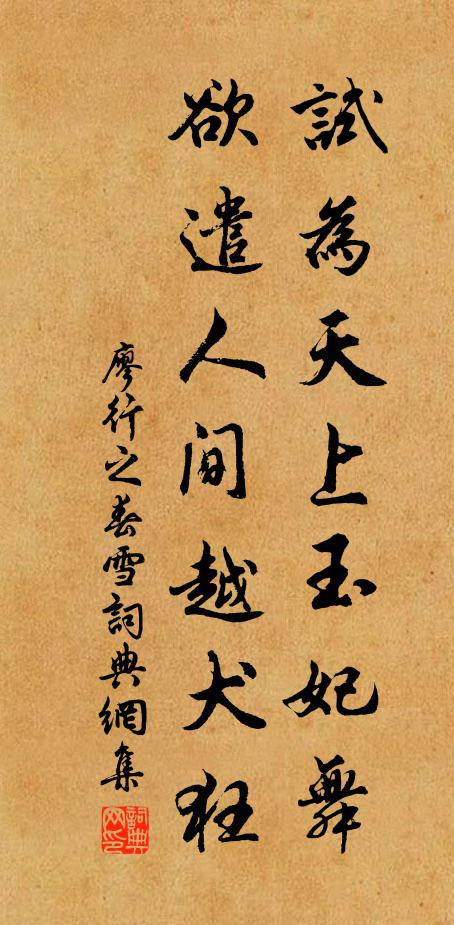 試為天上玉妃舞
欲遣人间越犬狂
廖行之春雪詞典網集
詞典网印